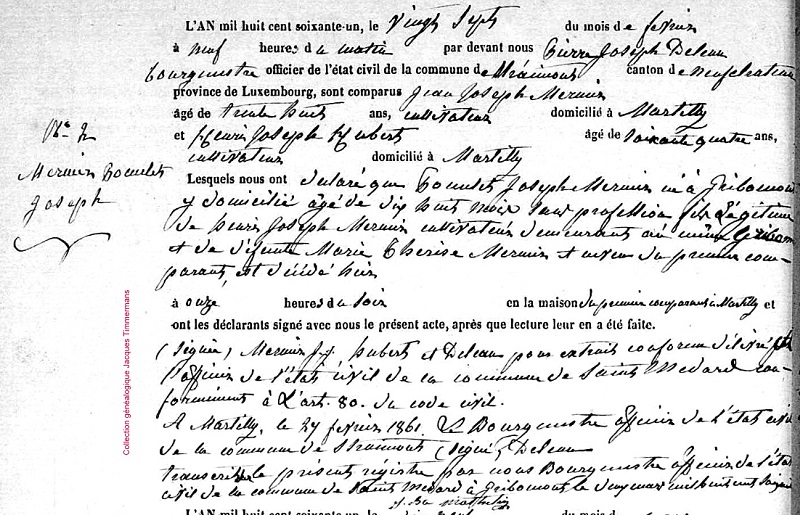 L'AN mil huit cent soixante-un, le vingt sept du mois de fevrier
à neuf heures du matin par devant nous Pierre Joseph Deleau
bourgmestre officier de l'état civil de la commune de Straimont canton de neufchateau
province de Luxembourg, sont comparus Jean Joseph Mernier
âgé de trente huit ans, cultivateur domicilié à Martilly
et Henri Joseph Hubert âgé de soixante quatre ans,
cultivateur domicilié à Martilly
N° 2
Mernier
Joseph
Lesquels nous ont declaré que Joseph Mernier né à Gribomont
y domicilié agé de dix huit mois sans profession fils légitime
de henri Joseph Mernier cultivateur demeurant au même Gribom
et de défunte Marie Therise Mernier et neveu du premier com-
parant, est décédé hier
à onze heures du soir en la maison du premier comparant à Martilly et
ont les déclarants signé avec nous le présent acte, après que lecture leur en a été faite.
(Signé) Mernier J. J., hubert et Deleau pour extrait conforme délivré
l'officier de l'état civil de la commune de Saint Medard con-
formément à L'art. 80. du code civil.
A Martilly, le 27 fevrier 1861. Le Bourgmestre officier de l'état civil
de la commune de Straimont (Signé) Deleau
transcrit le présent régistre par nous Bourgmestre officier de l'état
civil de la commune de Saint Medard à Gribomont le deux mars mil huit cent soixante
L'AN mil huit cent soixante-un, le du mois de
Collection généalogique Jacques Timmermans